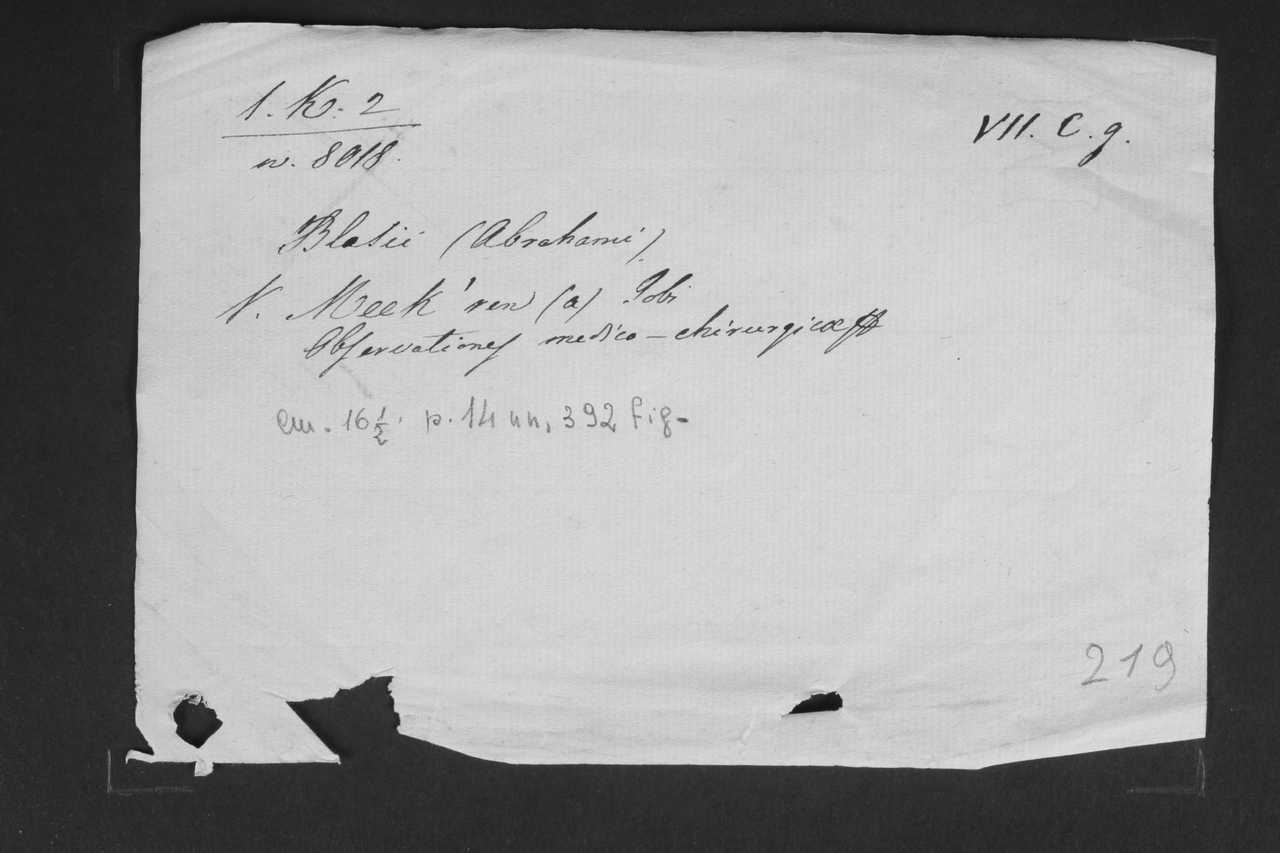 1. K. 2
VII. C. g.
n. 8018.
Blasii (Abrahami)
V. Meek'ren (a) Jobi
Observationes medico-chirurgicæ
cm. 16 1/2. p. 14 nn, 392 fig-
219